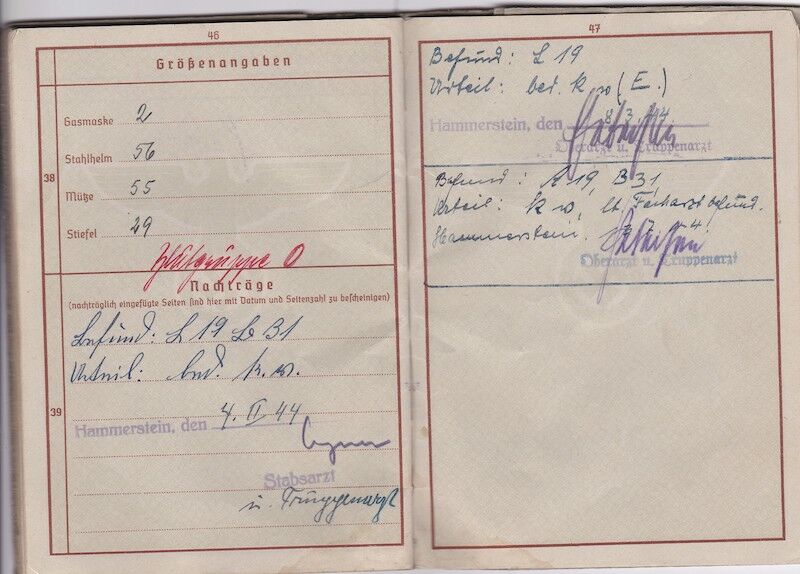 46
Größenangaben
38
Gasmaske 2
Stahlhelm 56
Mütze 55
Stiefel 29
Blutgruppe O
Nachträge
(nachträglich eingefügte Seiten sind hier mit Datum und Seitenzahl zu bescheinigen)
39
Befund: L 19 L B 31
Urteil: bed. k.w.
Hammerstein, den 4. II 44
Stabsarzt
u. Truppenarzt
47
Befund: L 19
Urteil: bed. k w (E.)
Hammerstein, den 8. 3. 44.
Oberarzt u. Truppenarzt
Befund: A 19, B 31,
Urteil: k w, lt. Facharztbefund.
Hammerstein.
Oberarzt u. Truppenarzt